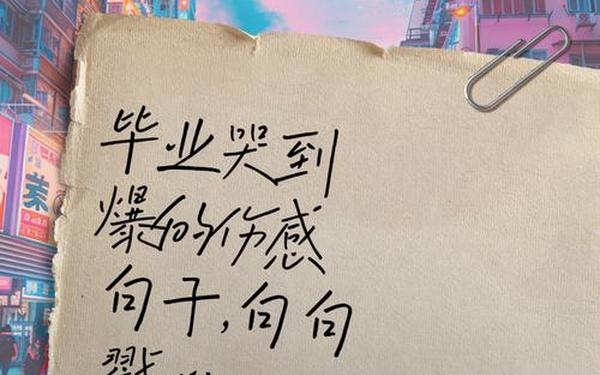 毕业哭到
爆的伤感
句子,句句
戳